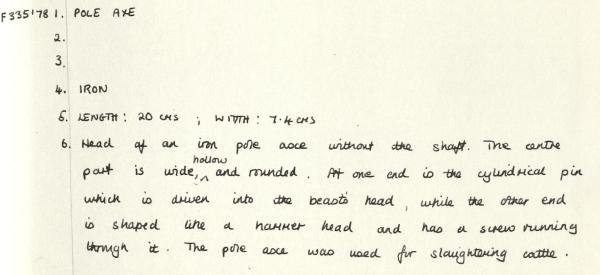 F335'78 1. POLE AXE
2.
3.
4. IRON
5. LENGTH: 20 CMS ; WIDTH: 7.4 CMS
6. Head of an iron pole axe without the shaft. The centre
part is wide, hollow and rounded. At one end is the cylindrical pin
which is driven into the beast's head, while the other end
is shaped like a hammer head and has a screw running
through it. The pole axe was used for slaughtering cattle.